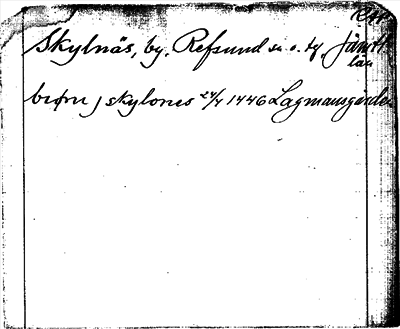 Skylnäs, by, Refsund sn o. tg Jämtl.
län
biørn j skylones 24/4 1446 Lagmansgården